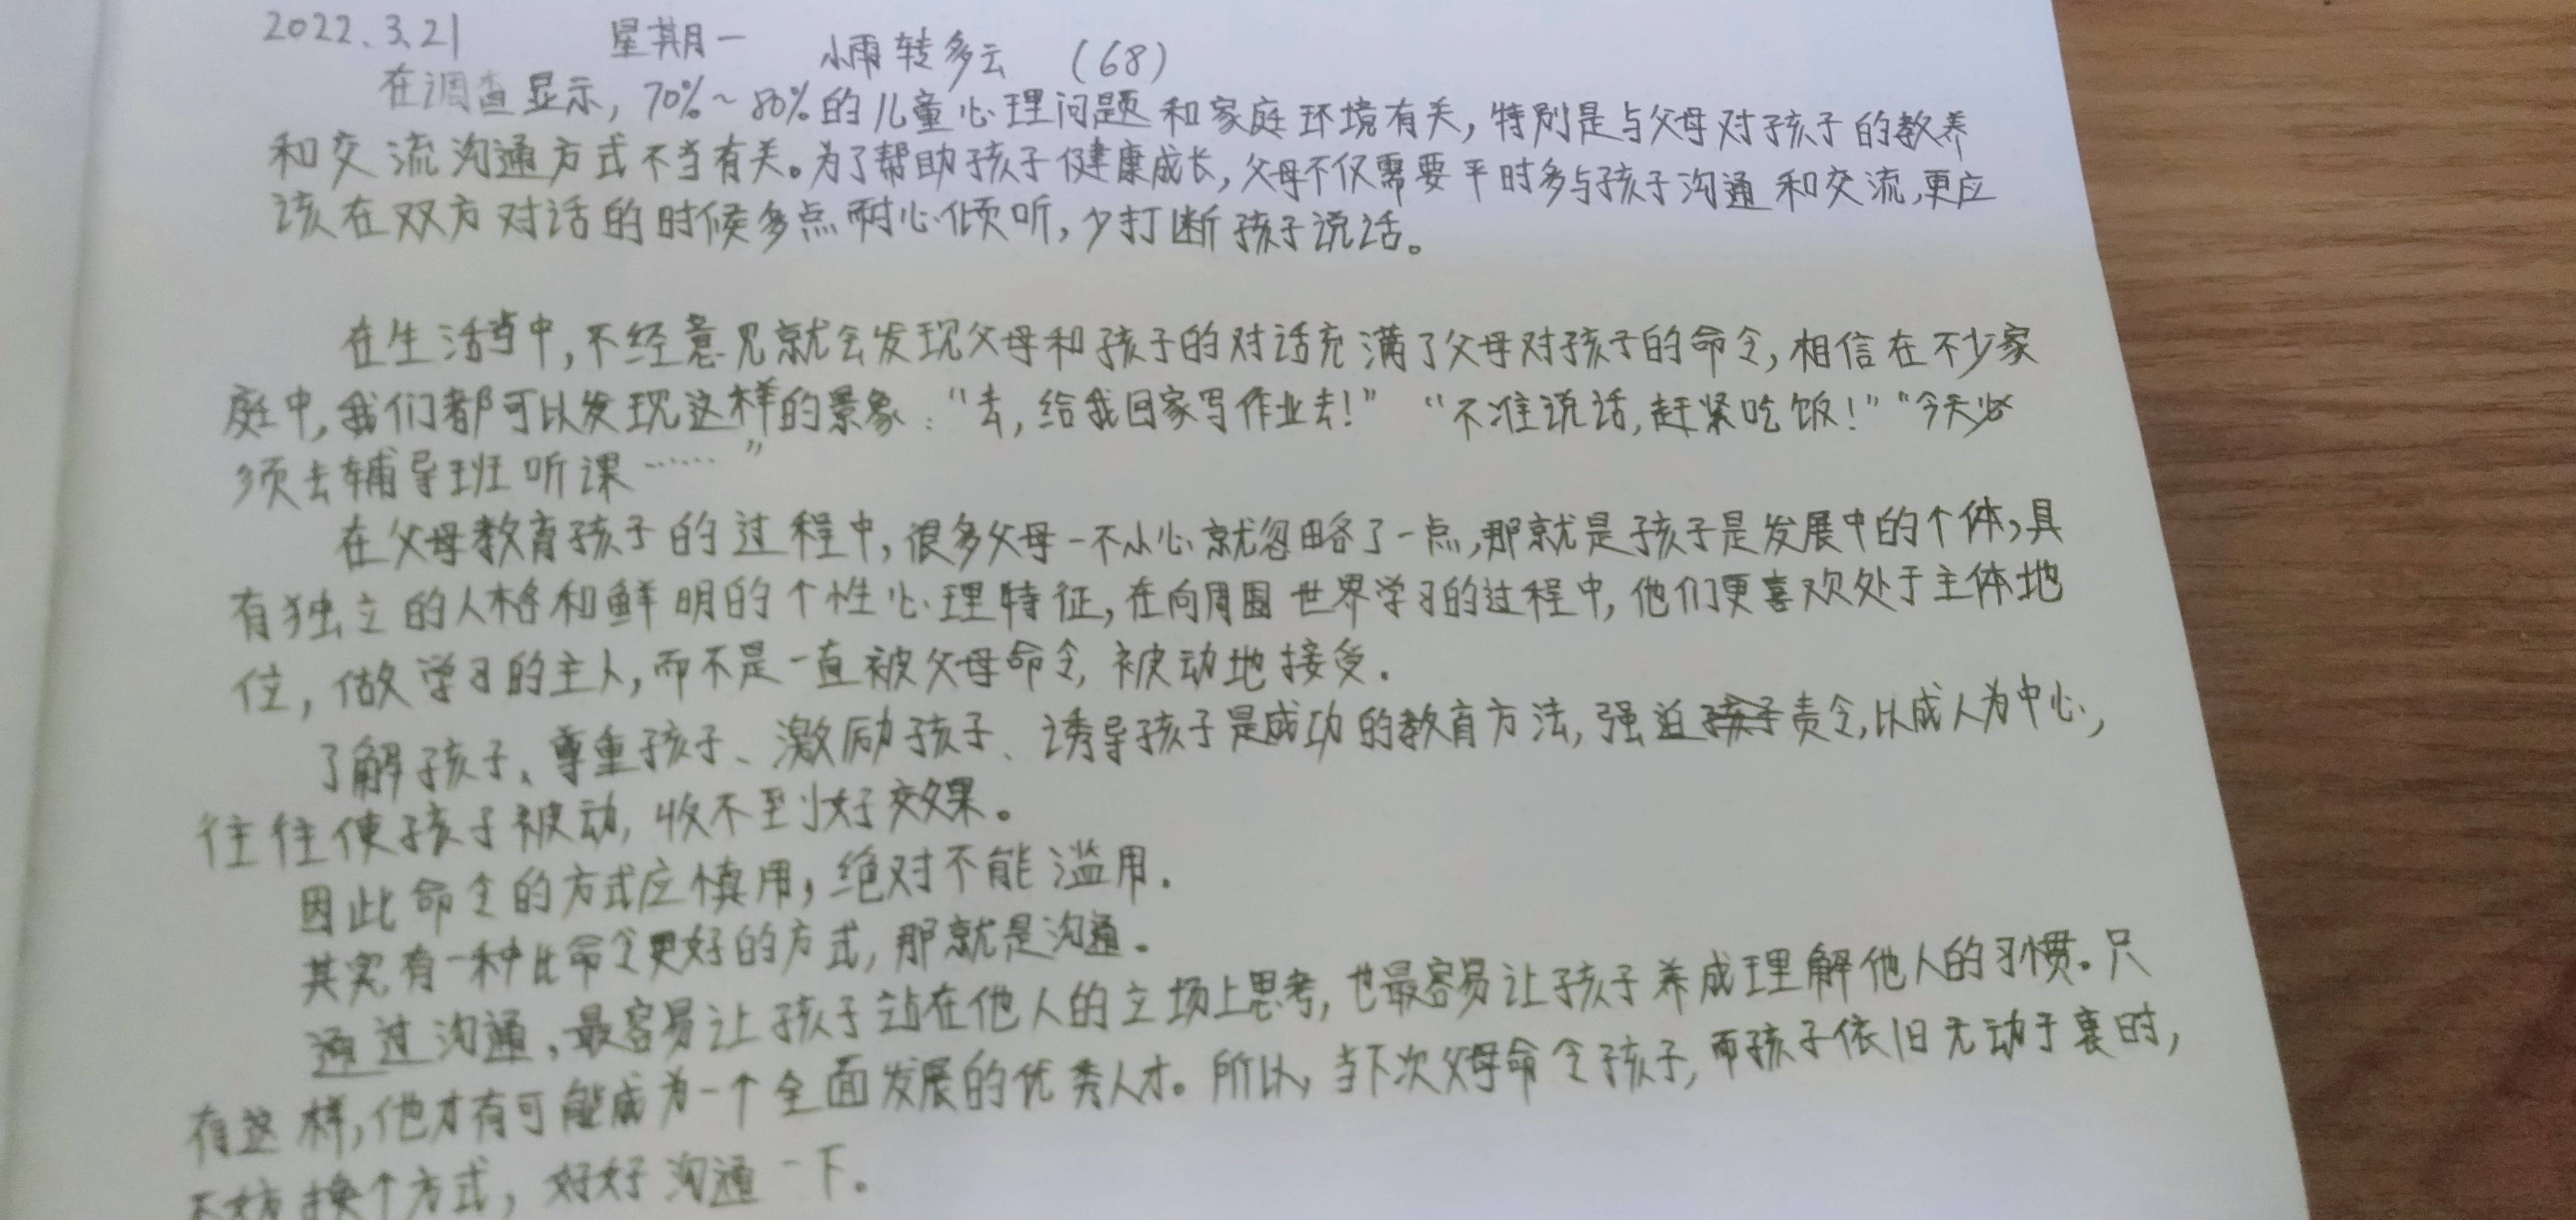 2022.3.21 星期一 小雨转多云 (68)
在调查显示，70%～80%的儿童心理问题和家庭环境有关，特别是与父母对孩子的教养
和交流沟通方式不当有关。为了帮助孩子健康成长，父母不仅需要平时多与孩子沟通和交流，更应
该在双方对话的时候多点耐心倾听，少打断孩子说话。
在生活当中，不经意见就会发现父母和孩子的对话充满了父母对孩子的命令，相信在不少家
庭中，我们都可以发现这样的景象：“去，给我回家写作业去！”“不准说话，赶紧吃饭！”“今天必
须去辅导班听课……”
在父母教育孩子的过程中，很多父母一不小心就忽略了一点，那就是孩子是发展中的个体，具
有独立的人格和鲜明的个性心理特征，在向周围世界学习的过程中，他们更喜欢处于主体地
位，做学习的主人，而不是一直被父母命令，被动地接受.
了解孩子、尊重孩子、激励孩子、诱导孩子是成功的教育方法，强迫责令，以成人为中心，
往往使孩子被动，收不到好效果。
因此命令的方式应慎用，绝对不能滥用.
其实有一种比命令更好的方式，那就是沟通。
通过沟通，最容易让孩子站在他人的立场上思考，也最容易让孩子养成理解他人的习惯。只
有这样，他才有可能成为一个全面发展的优秀人才。所以，当下次父母命令孩子，而孩子依旧无动于衷时，
不妨换个方式，好好沟通一下。